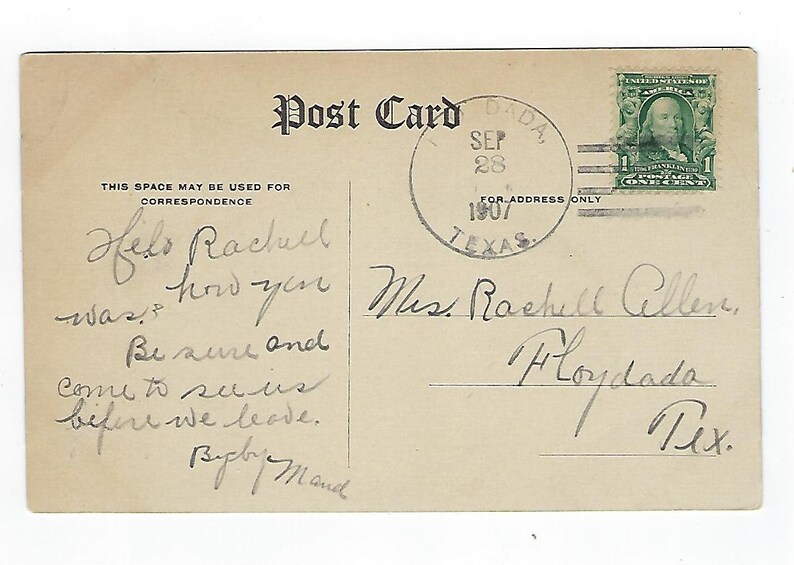 Post Card
DADA,
SEP
28
1907
TEXAS.
UNITED STATES OF
AMERICA
1 FRANKLIN 1
POSTAGE
ONE CENT
THIS SPACE MAY BE USED FOR
CORRESPONDENCE
FOR ADDRESS ONLY
Helo Rachell
how you
was?
Be sure and
come to see us
before we leave.
Byby
Maud
Mrs. Rachell Allen,
Floydada
Tex.